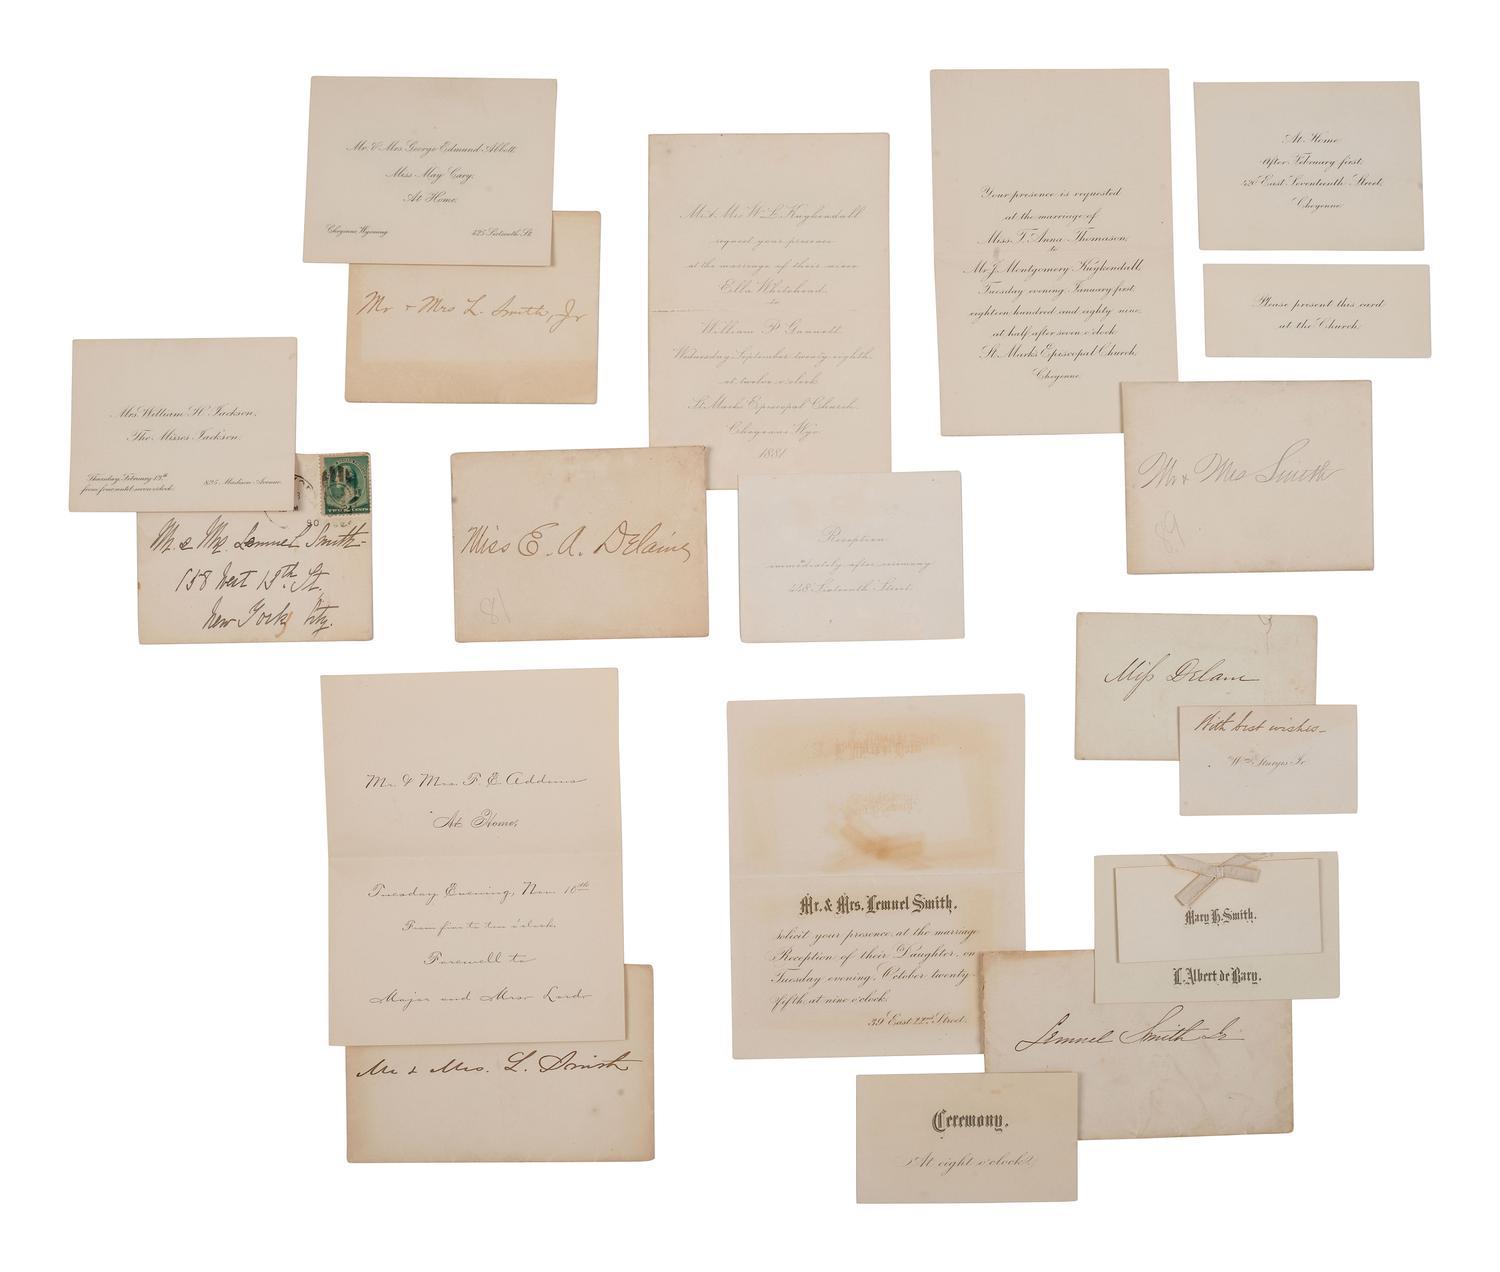 Mr. & Mrs. George Edmund Abbott,
Miss May Cary,
At Home,
Cheyenne Wyoming
425 Sixteenth St.
Mr + Mrs L. Smith, Jr
Mrs. William H. Jackson,
The Misses Jackson,
Thursday, February 13th
from four until seven o'clock.
825 Madison Avenue.
TWO CENTS
90
Mr. & Mrs. Lemuel Smith-
158 West 13th St.
New York City.
Mr. & Mrs. W. L. Kuykendall
request your presence
at the marriage of their niece
Ella Whitehead
to
William P. Gannett
Wednesday September twenty eighth
at twelve o'clock
St. Mark's Episcopal Church.
Cheyenne Wyo
1881
Miss E. A. Delaine
81
Reception
immediately after ceremony
448 Sixteenth Street.
Your presence is requested
at the marriage of
Miss. F. Anna Thomason,
to
Mr. J. Montgomery Kuykendall,
Tuesday evening, January first
eighteen hundred and eighty nine,
at half after seven o'clock
St. Marks Episcopal Church,
Cheyenne
At Home
after February first,
420 East Seventeenth Street,
Cheyenne
Please present this card
at the Church
Mr & Mrs Smith
89
Miss Delain
With best wishes-
Wm. Sturgis Jr.
Mr. & Mrs. F. E. Addoms
At Home,
Tuesday Evening, Nov. 10th
From five to ten o'clock.
Farewell to
Major and Mrs. Lord
Mr & Mrs. L. Smith
Mr. & Mrs. Lemuel Smith.
Solicit your presence, at the marriage
Reception of their Daughter, on
Tuesday evening, October twenty-
fifth, at nine o'clock.
39 East 22nd Street.
Mary H. Smith.
L. Albert de Bary.
Lemuel Smith Jr
Ceremony.
At eight o'clock.